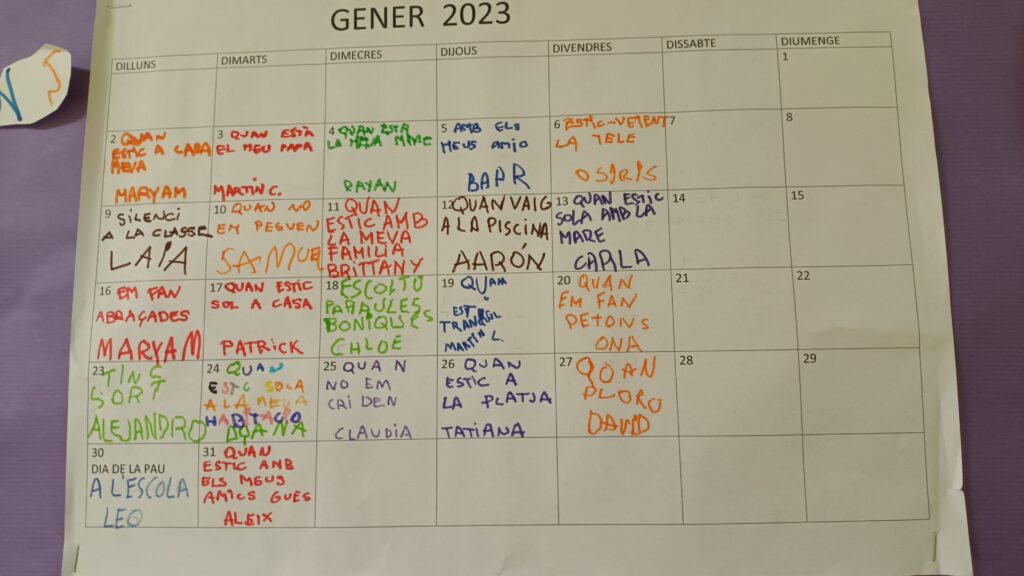 GENER 2023
DILLUNS DIMARTS DIMECRES DIJOUS DIVENDRES DISSABTE DIUMENGE
1
2 QUAN
ESTIC A CASA
MEVA
MARYAM
3 QUAN ESTÀ
EL MEU PAPA
MARTIN C.
4 QUAN ESTÀ
LA MEVA MARE
RAYAN
5 AMB ELS
MEUS AMIO
BAPR
6 ESTIC-VETENT
LA TELE
OSIRIS
7
8
9
SILENCI
A LA CLASSE
LAIA
10 QUAN NO
EM PEGUEN
SAMUEL
11 QUAN
ESTIC AMB
LA MEVA
FAMILIA
BRITTANY
12 QUAN VAIG
A LA PISCINA
AARÓN
13 QUAN ESTIC
SOLA AMB LA
MARE
CARLA
14
15
16 EM FAN
ABRAÇADES
MARYAM
17 QUAN ESTIC
SOL A CASA
PATRICK
18 ESCOLTO
PARAULES
BONIQUES
CHLOE
19 QUAM
EST
TRANQUIL
MARTIN L.
20 QUAN
EM FAN
PETONS
ONA
21
22
23 TINC
SORT
ALEJANDRO
24 QUAN
ESTIC SOLA
A LA MEVA
HABITACIO
25 QUAN
NO EM
CRIDEN
CLAUDIA
26 QUAN
ESTIC A
LA PLATJA
TATIANA
27 QUAN
PLORO
DAVID
28
29
30
DIA DE LA PAU
A L'ESCOLA
LEO
31 QUAN
ESTIC AMB
ELS MEUS
AMICS GUES
ALEIX